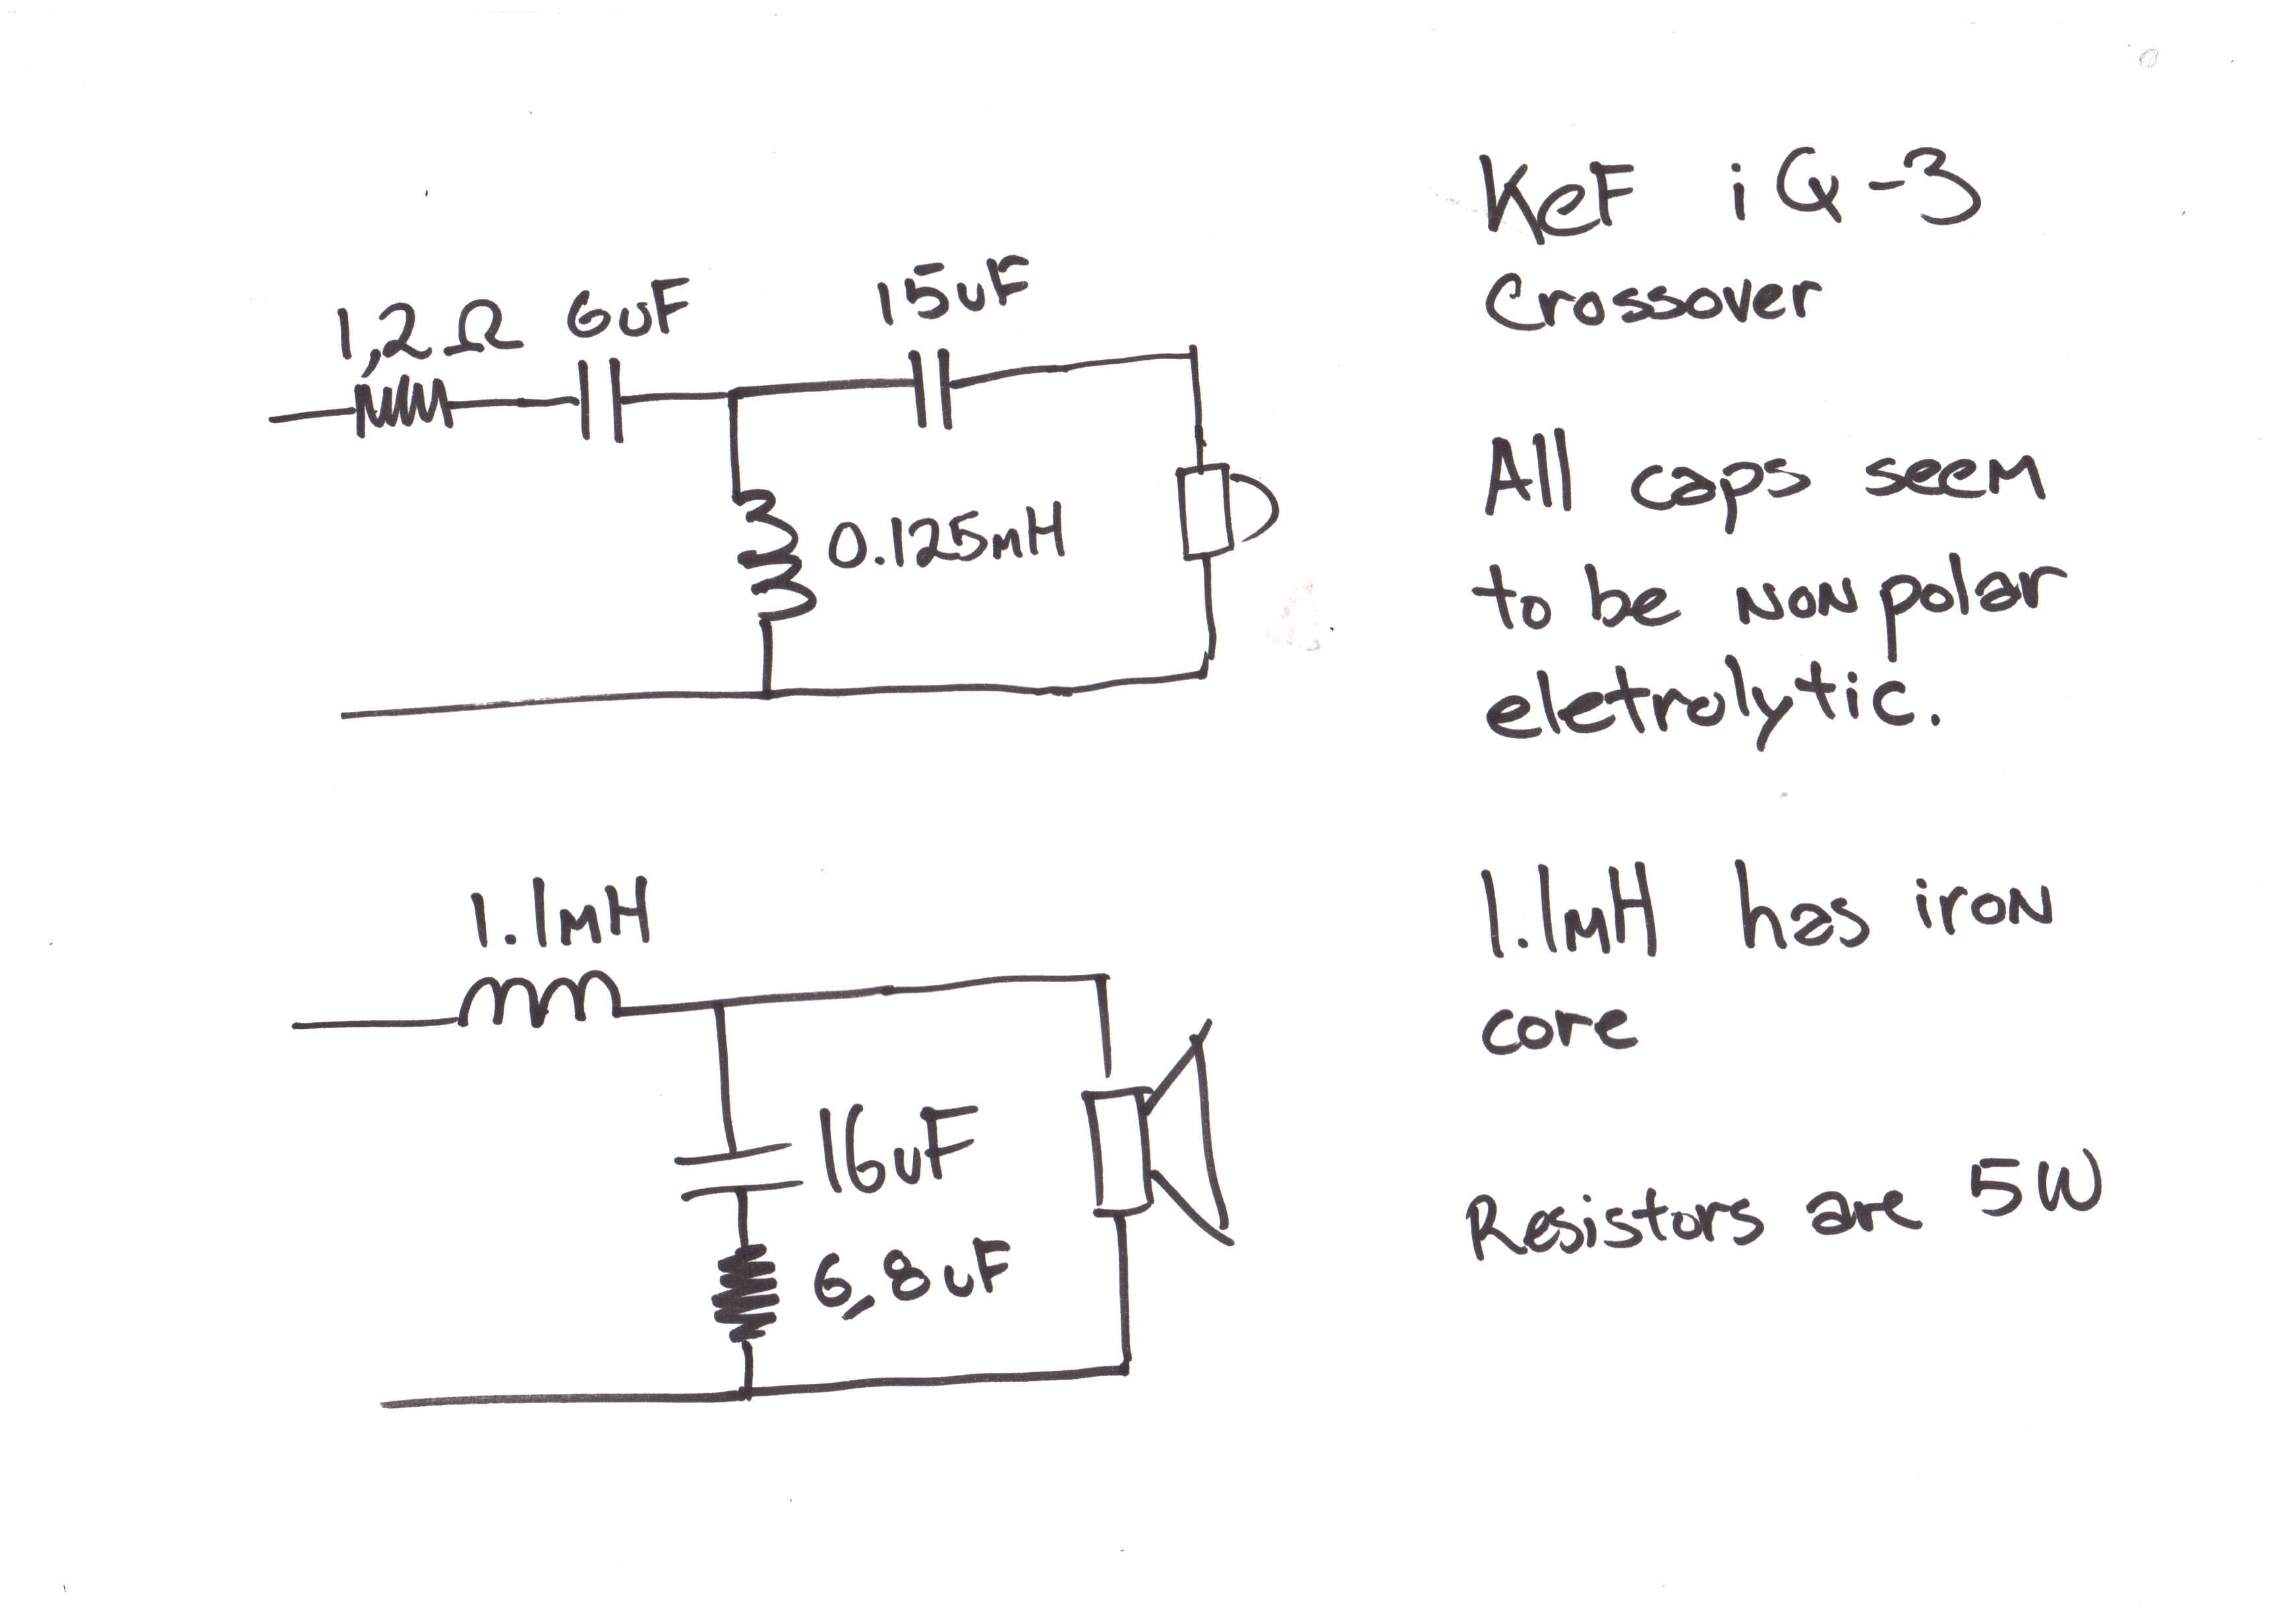 KeF iQ-3
Crossover
1,2Ω 6uF 15uF
0.125mH
All caps seem
to be NON polar
eletrolytic.
1.1mH
1.1mH has iron
core
16uF
6,8uF
Resistors are 5W